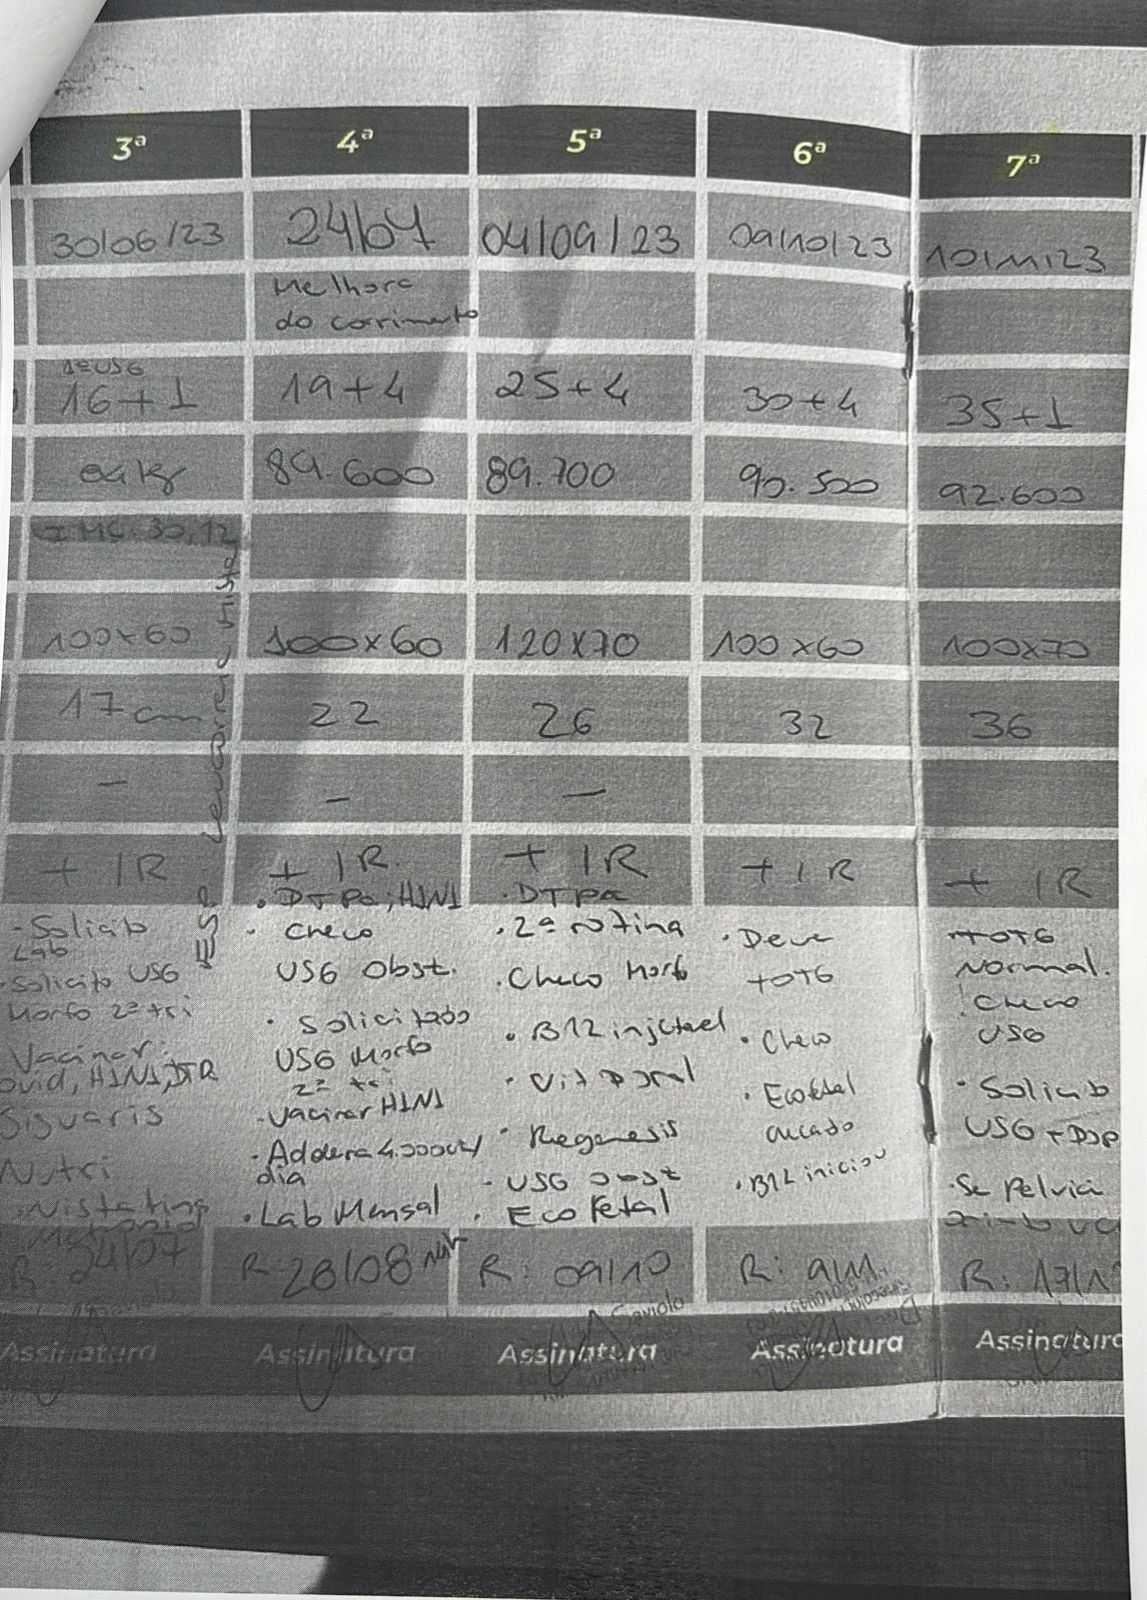 3ª 4ª 5ª 6ª 7ª
30/06/23 24/07 04/09/23 09/10/23 10/11/23
Melhora
do corrimento
1º USG
16+1 19+4 25+4 30+4 35+1
89.600 89.700 90.500 92.600
IMC: 30,12
100x60 100x60 120x70 100x60 100x70
17cm 22 26 32 36
— — —
+ IR + IR. + IR + IR + IR
JESP: Leucorreia Mista
- Solicito
Lab
- Solicito USG
Morfo 2º tri
Vacinar:
Covid, H1N1, DTPa
Sigvaris
Nutri
Nistatina
R: 24/07
. DTPa; H1N1
. Checo
USG Obst.
. Solicitado
USG Morfo
2º tri
. Vacinar H1N1
. Addera 4.000UI/
dia
. Lab Mensal
R: 28/08
. DTPa
. 2ª rotina
. Checo Morfo
. B12 injetável
. Vit D oral
. Regenesis
- USG Obst
. Eco Fetal
R: 09/10
. Deve
TOTG
. Checo
. Ecofetal
. B12 iniciou
R: 9/11
TOTG
Normal.
. Checo
USG
. Solicito
USG + Dop
. Se Pelvica
R: 17/1
Assinatura Assinatura Assinatura Assinatura Assinatura